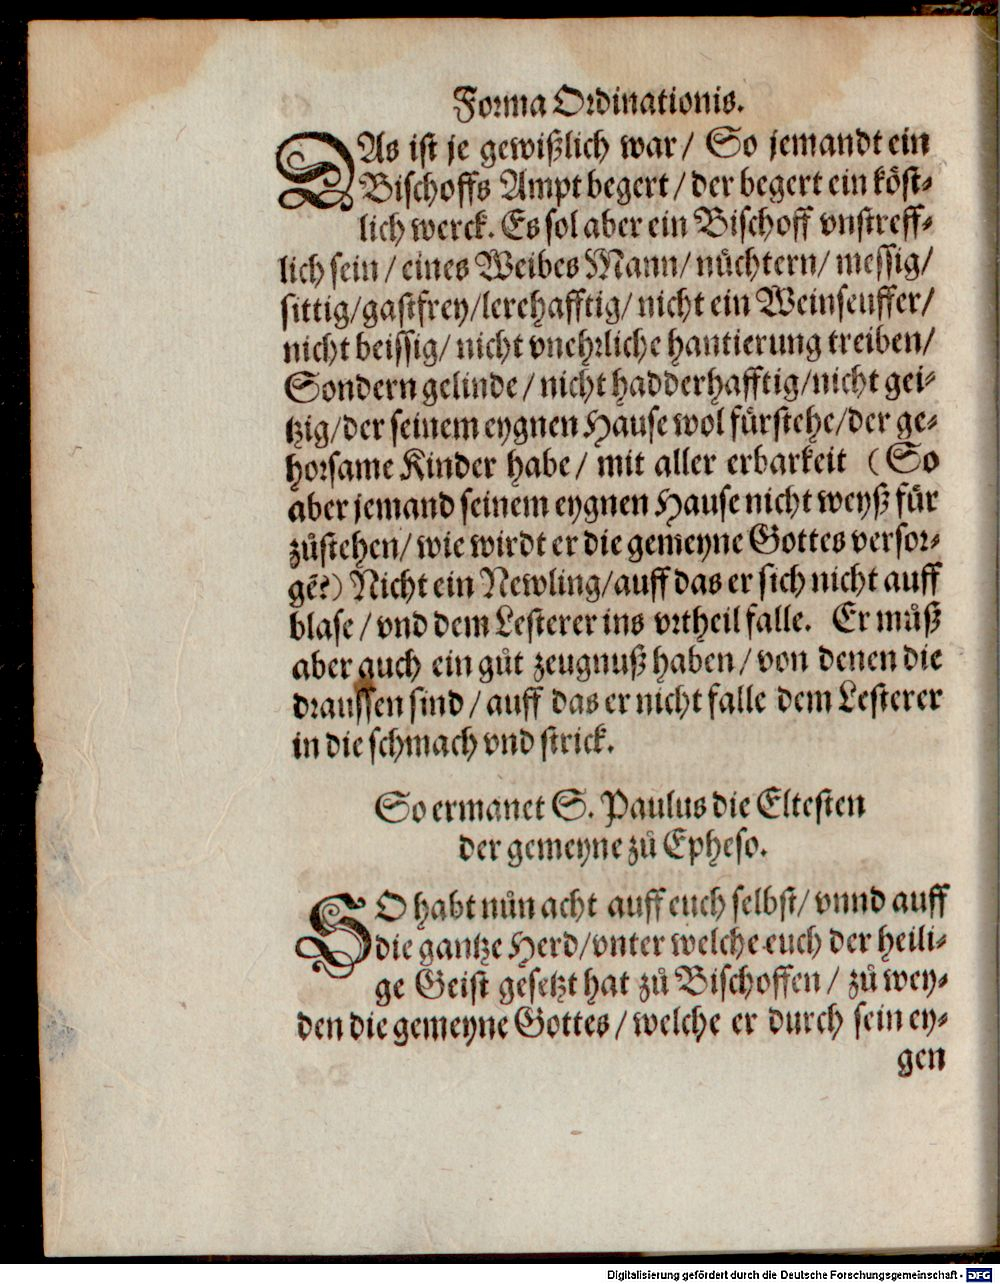 Forma Ordinationis.
DAs ist je gewißlich war/ So jemandt ein
Bischoffs Ampt begert/ der begert ein köst-
lich werck. Es sol aber ein Bischoff vnstreff-
lich sein/ eines Weibes Mann/ nüchtern/ messig/
sittig/ gastfrey/ lerehafftig/ nicht ein Weinseuffer/
nicht beissig/ nicht vnehrliche hantierung treiben/
Sondern gelinde/ nicht hadderhafftig/ nicht gei-
tzig/ der seinem eygnen Hause wol fürstehe/ der ge-
horsame Kinder habe/ mit aller erbarkeit (So
aber jemand seinem eygnen Hause nicht weyß für
zůstehen/ wie wirdt er die gemeyne Gottes versor-
gē?) Nicht ein Newling/ auff das er sich nicht auff
blase/ vnd dem Lesterer ins vrtheil falle. Er můß
aber auch ein gůt zeugnuß haben/ von denen die
draussen sind/ auff das er nicht falle dem Lesterer
in die schmach vnd strick.
So ermanet S. Paulus die Eltesten
der gemeyne zů Epheso.
SO habt nůn acht auff euch selbst/ vnnd auff
die gantze Herd/ vnter welche euch der heili-
ge Geist gesetzt hat zů Bischoffen/ zů wey-
den die gemeyne Gottes/ welche er durch sein ey-
gen
Digitalisierung gefördert durch die Deutsche Forschungsgemeinschaft - DFG